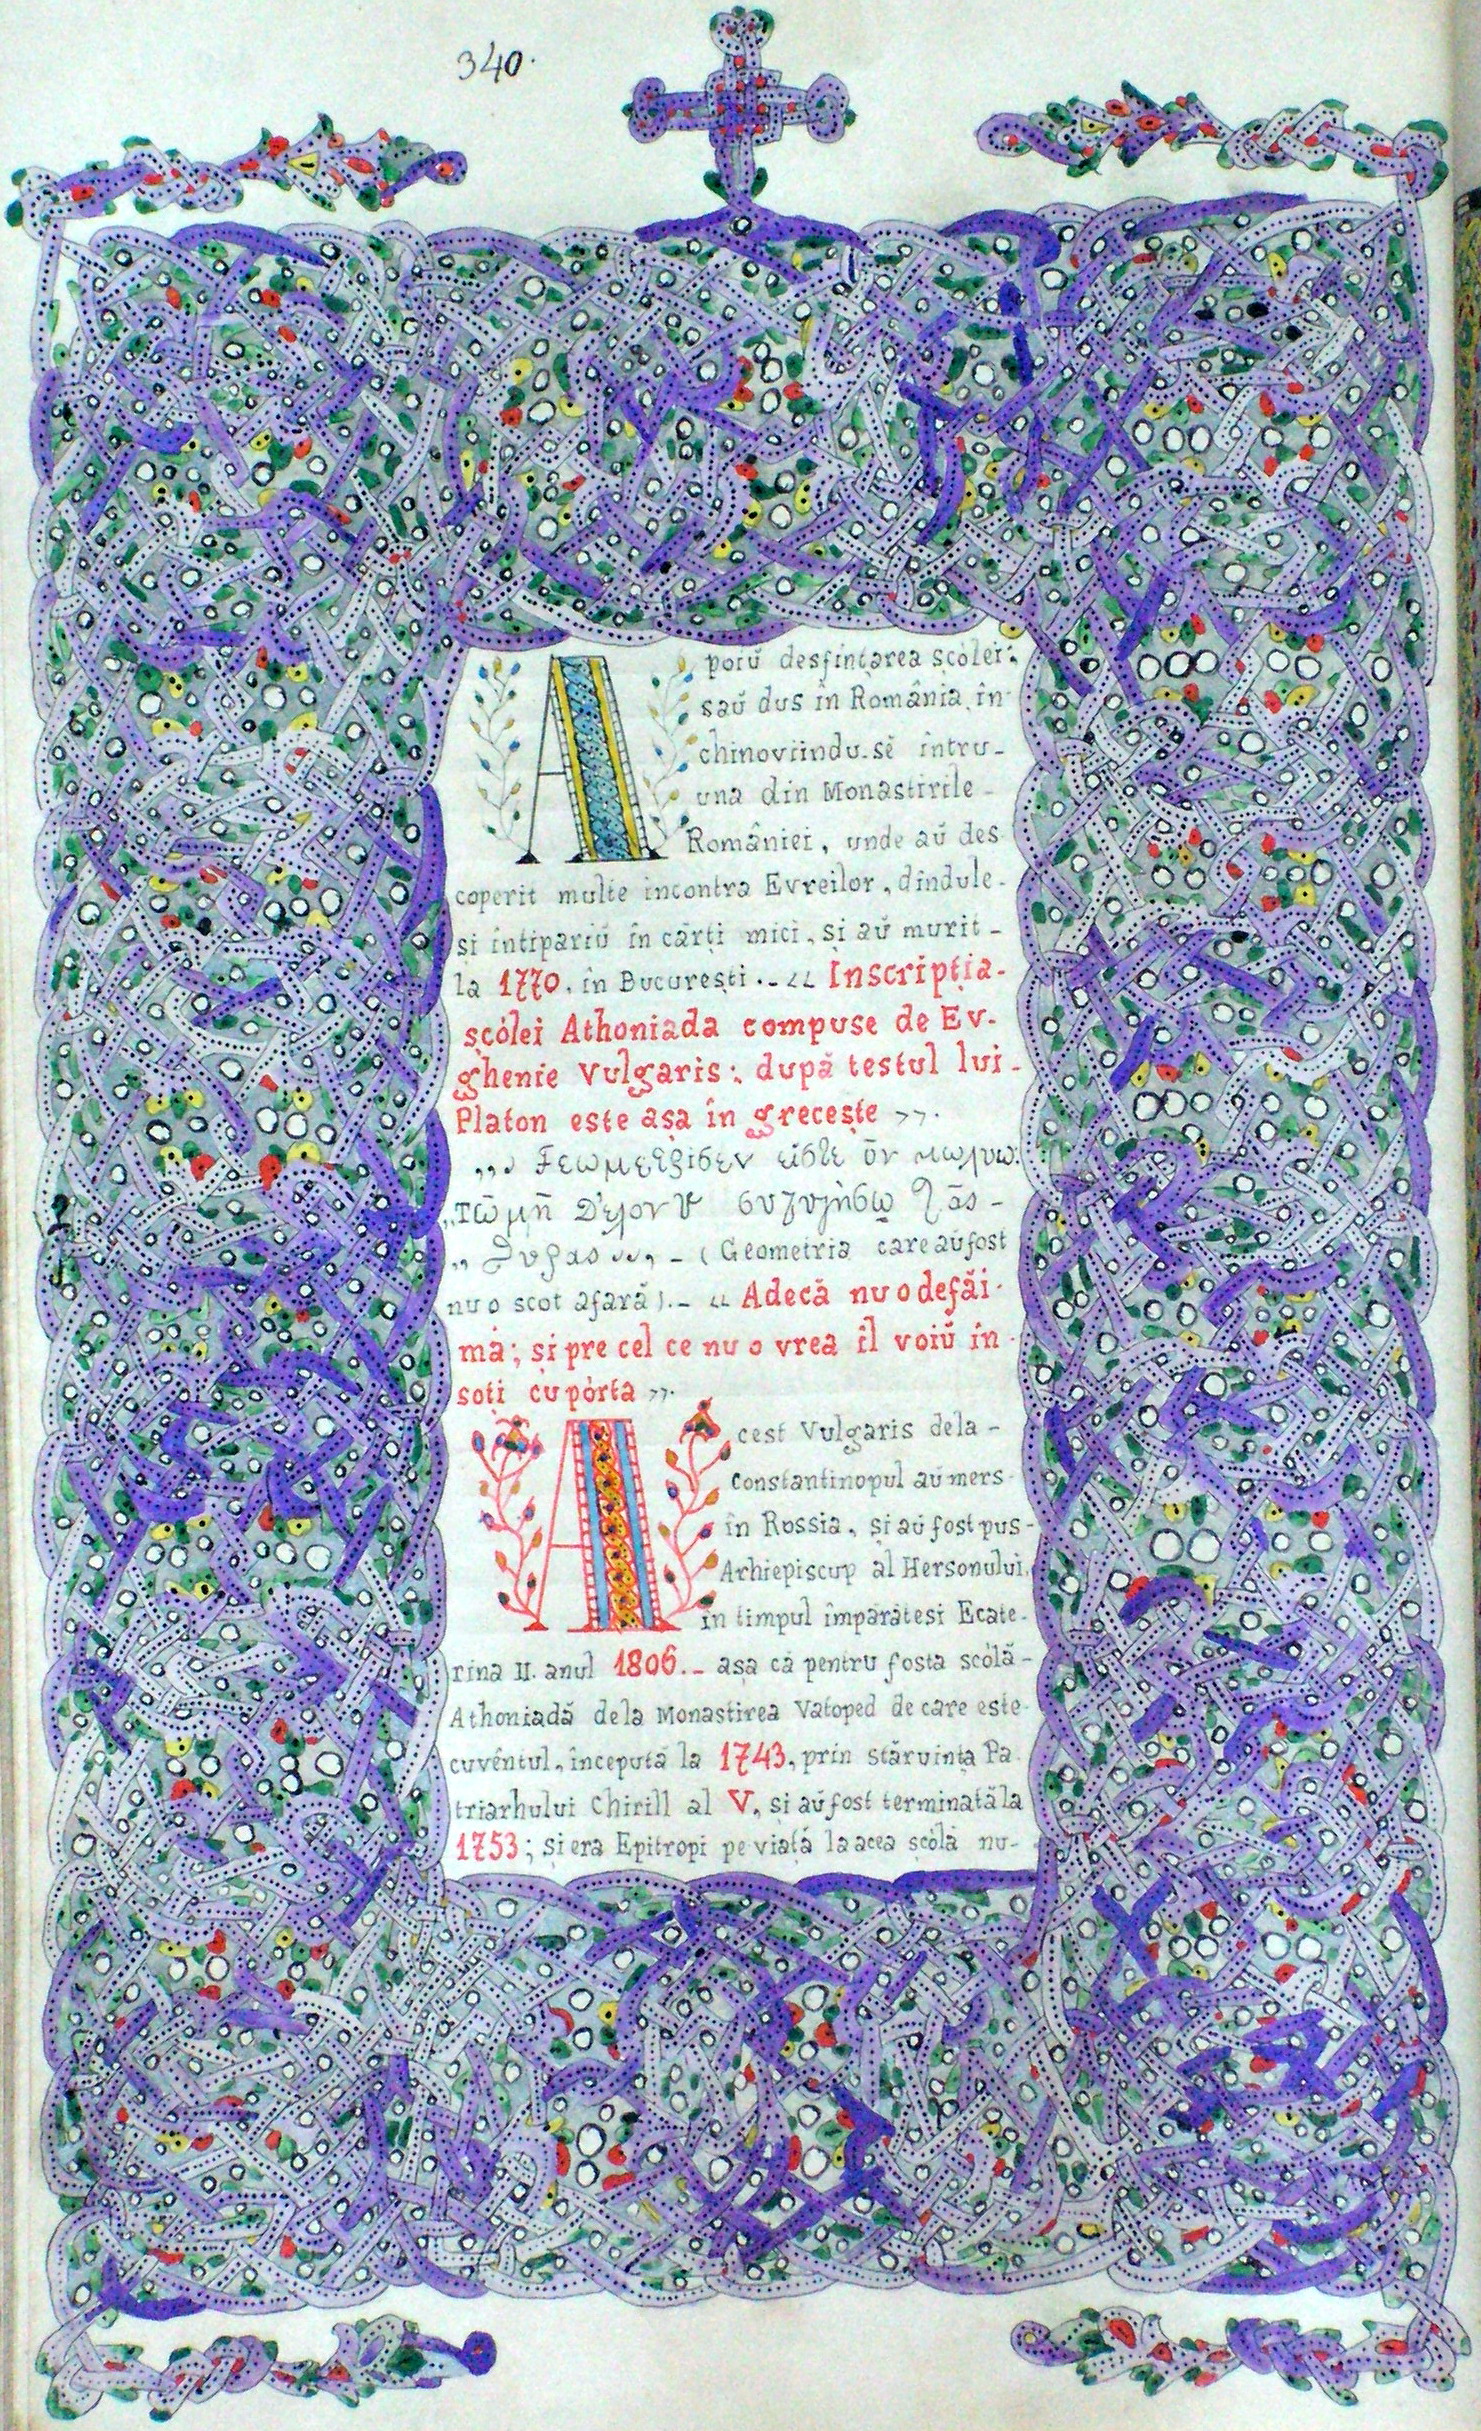 340.
Apoiŭ desfințarea școlei:
saŭ dus în România, în
chinoviindu-sĕ întru-
una din Monastirile -
României, unde aŭ des
coperit multe incontra Evreilor, dîndule-
și întipariŭ în cărți mici, și aŭ murit -
la 1770. în București.-,, Inscripția-
școlei Athoniada compuse de Ev-
ghenie Vulgaris:, după testul lui -
Platon este așa în grecește ,,.
- ( Geometria care aŭ fost
nu o scot afară ).- ,, Adecă nu o defăi-
mă; și pre cel ce nu o vrea îl voiŭ în -
soți cu pórta ,,.
Acest Vulgaris dela -
Constantinopul aŭ mers
în Rossia, și aŭ fost pus-
Arhiepiscup al Hersonului,
în timpul împărătesi Ecate-
rina II. anul 1806.- așa că pentru fosta scólă-
Athoniadă dela Monastirea Vatoped de care este-
cuvêntul, începută la 1743, prin stăruința Pa
triarhului Chirill al V, și aŭ fost terminată la
1753; și era Epitropi pe viață la acea școlă nu-